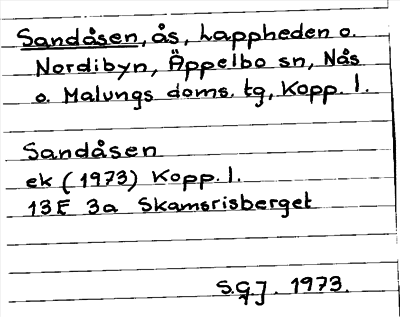 Sandåsen, ås, Lappheden o.
Nordibyn, Äppelbo sn, Nås
o. Malungs doms. tg, Kopp. l.
Sandåsen
ek (1973) Kopp. l.
13E 3a Skamsrisberget
S.G.J. 1973.